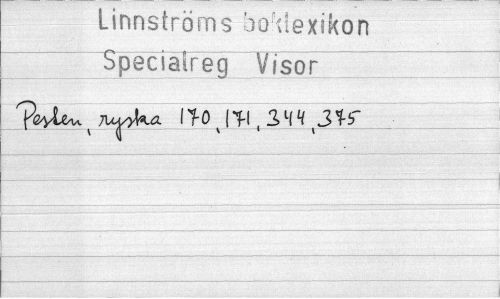 Linnströms boklexikon
Specialreg Visor
Pesten, ryska 170, 171, 344, 375